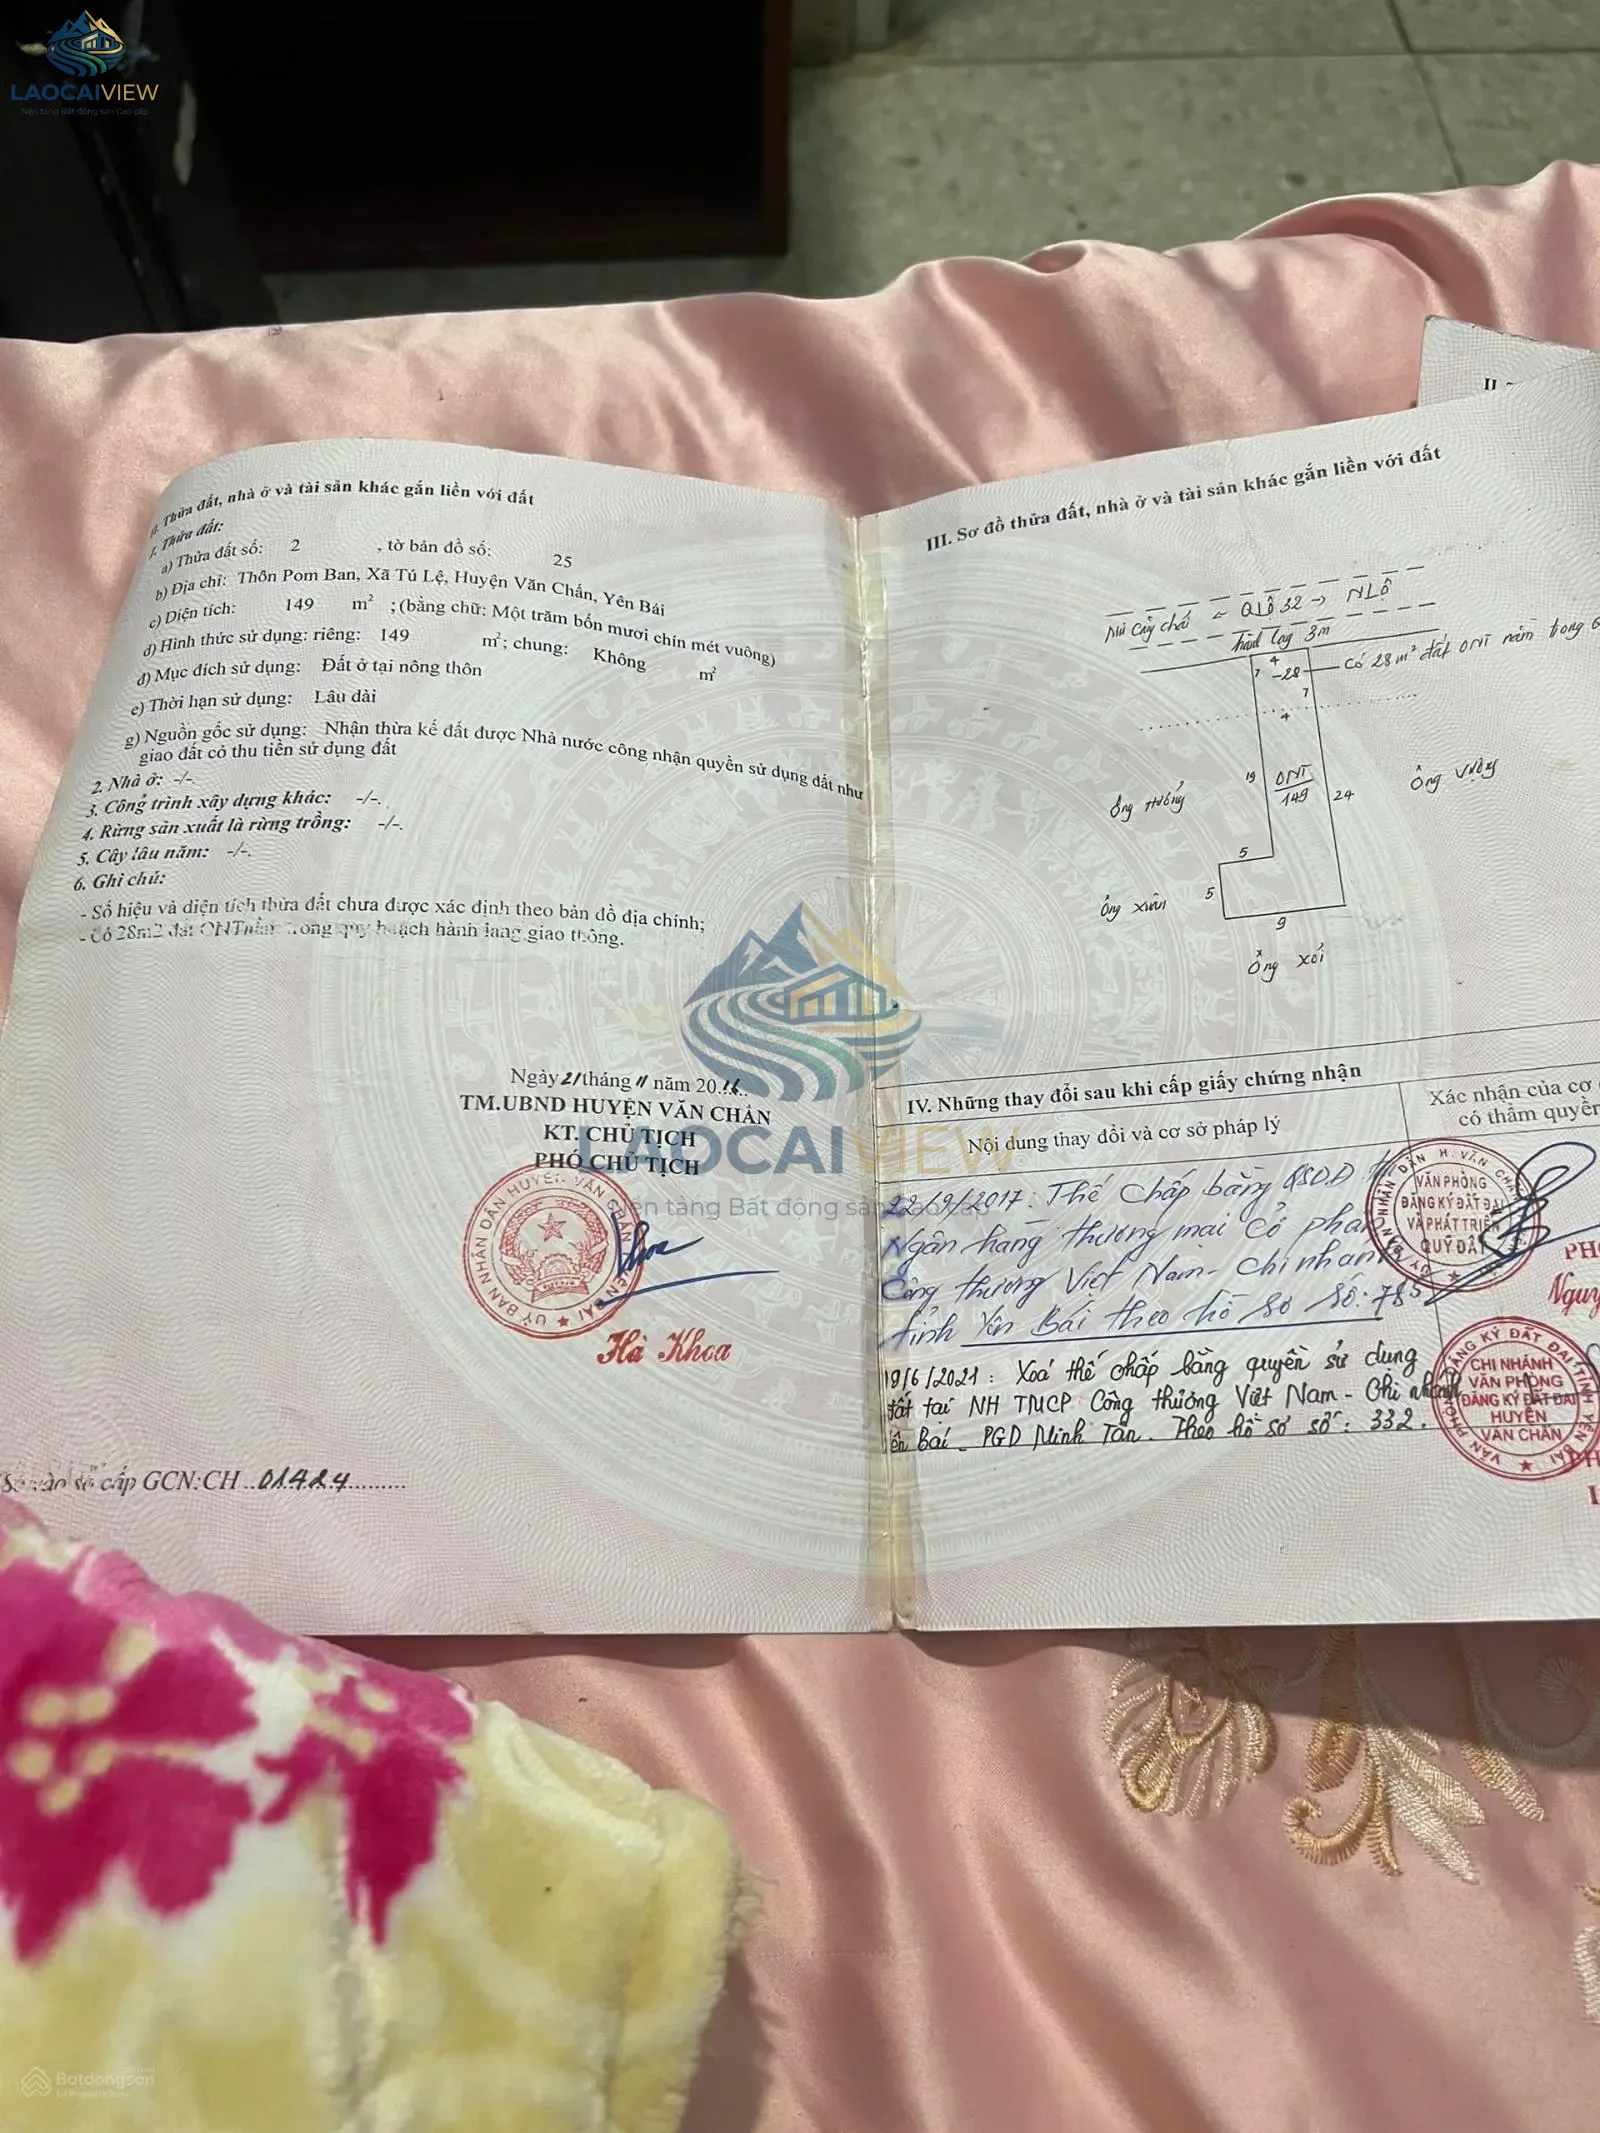 LAOCAIVIEW
Nền tảng Bất động sản Cao cấp
II
II. Thửa đất, nhà ở và tài sản khác gắn liền với đất
1. Thửa đất:
a) Thửa đất số: 2 , tờ bản đồ số: 25
b) Địa chỉ: Thôn Pom Ban, Xã Tú Lệ, Huyện Văn Chấn, Yên Bái
c) Diện tích: 149 m² ; (bằng chữ: Một trăm bốn mươi chín mét vuông)
d) Hình thức sử dụng: riêng: 149 m²; chung: Không m²
đ) Mục đích sử dụng: Đất ở tại nông thôn
e) Thời hạn sử dụng: Lâu dài
g) Nguồn gốc sử dụng: Nhận thừa kế đất được Nhà nước công nhận quyền sử dụng đất như
giao đất có thu tiền sử dụng đất
2. Nhà ở: -/-.
3. Công trình xây dựng khác: -/-.
4. Rừng sản xuất là rừng trồng: -/-.
5. Cây lâu năm: -/-.
6. Ghi chú:
- Số hiệu và diện tích thửa đất chưa được xác định theo bản đồ địa chính;
- Có 28m2 đất ONT nằm trong quy hoạch hành lang giao thông.
Ngày 21 tháng 11 năm 2016
TM.UBND HUYỆN VĂN CHẤN
KT. CHỦ TỊCH
PHÓ CHỦ TỊCH
ỦY BAN NHÂN DÂN HUYỆN VĂN CHẤN
YÊN BÁI
Hà Khoa
Số vào sổ cấp GCN:CH 01424
III. Sơ đồ thửa đất, nhà ở và tài sản khác gắn liền với đất
Mù Cang chải ← QLộ 32 → NLộ
hành lang 3m
4
7 -28- Có 28m² đất ONT nằm trong
7
4
19 ONT 24
149
Ông Hưởng
Ông Vượng
5
5
Ông Xuân
9
Ông Xối
IV. Những thay đổi sau khi cấp giấy chứng nhận
Nội dung thay đổi và cơ sở pháp lý
Xác nhận của cơ
có thẩm quyền
22/9/2017: Thế chấp bằng QSDĐ
Ngân hàng thương mại Cổ phần
Công thương Việt Nam - Chi nhánh
tỉnh Yên Bái theo hồ sơ số: 785
VĂN PHÒNG
ĐĂNG KÝ ĐẤT ĐAI
VÀ PHÁT TRIỂN
QUỸ ĐẤT
PHÓ
Nguy
9/6/2021: Xoá thế chấp bằng quyền sử dụng
đất tại NH TMCP Công thương Việt Nam - Chi nhánh
Yên Bái - PGD Minh Tân. Theo hồ sơ số: 332.
VĂN PHÒNG ĐĂNG KÝ ĐẤT ĐAI TỈNH YÊN BÁI
CHI NHÁNH
VĂN PHÒNG
ĐĂNG KÝ ĐẤT ĐAI
HUYỆN
VĂN CHẤN
LAOCAIVIEW
Nền tảng Bất động sản Cao cấp
Batdongsan
by PropertyGuru